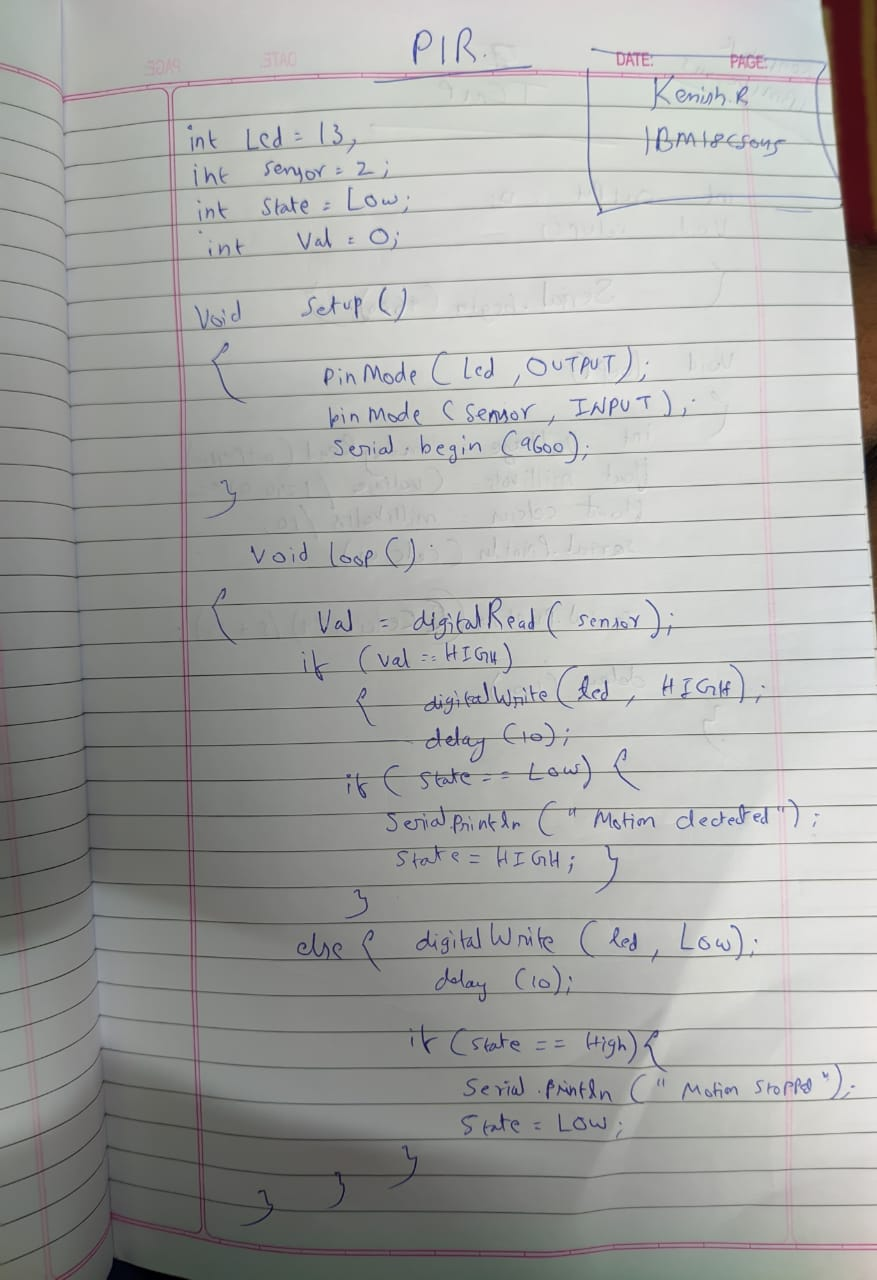 PIR.
DATE: PAGE:
Kenish.R
1BM18CS045
int Led = 13,
int sensor = 2;
int State = Low;
int Val = 0;
Void Setup ()
{ PinMode ( led , OUTPUT );
pinMode ( Sensor , INPUT );
Serial . begin (9600);
}
Void loop ()
{ Val = digitalRead ( sensor );
if (val == HIGH)
{ digitalWrite ( led , HIGH);
delay (10);
if ( State == Low) {
Serial println ( " Motion dectected ");
State = HIGH; }
}
else { digital Write ( led , Low);
delay (10);
if (state == High) {
Serial . println ( " Motion Stopped ");
State = LOW;
}
}
}